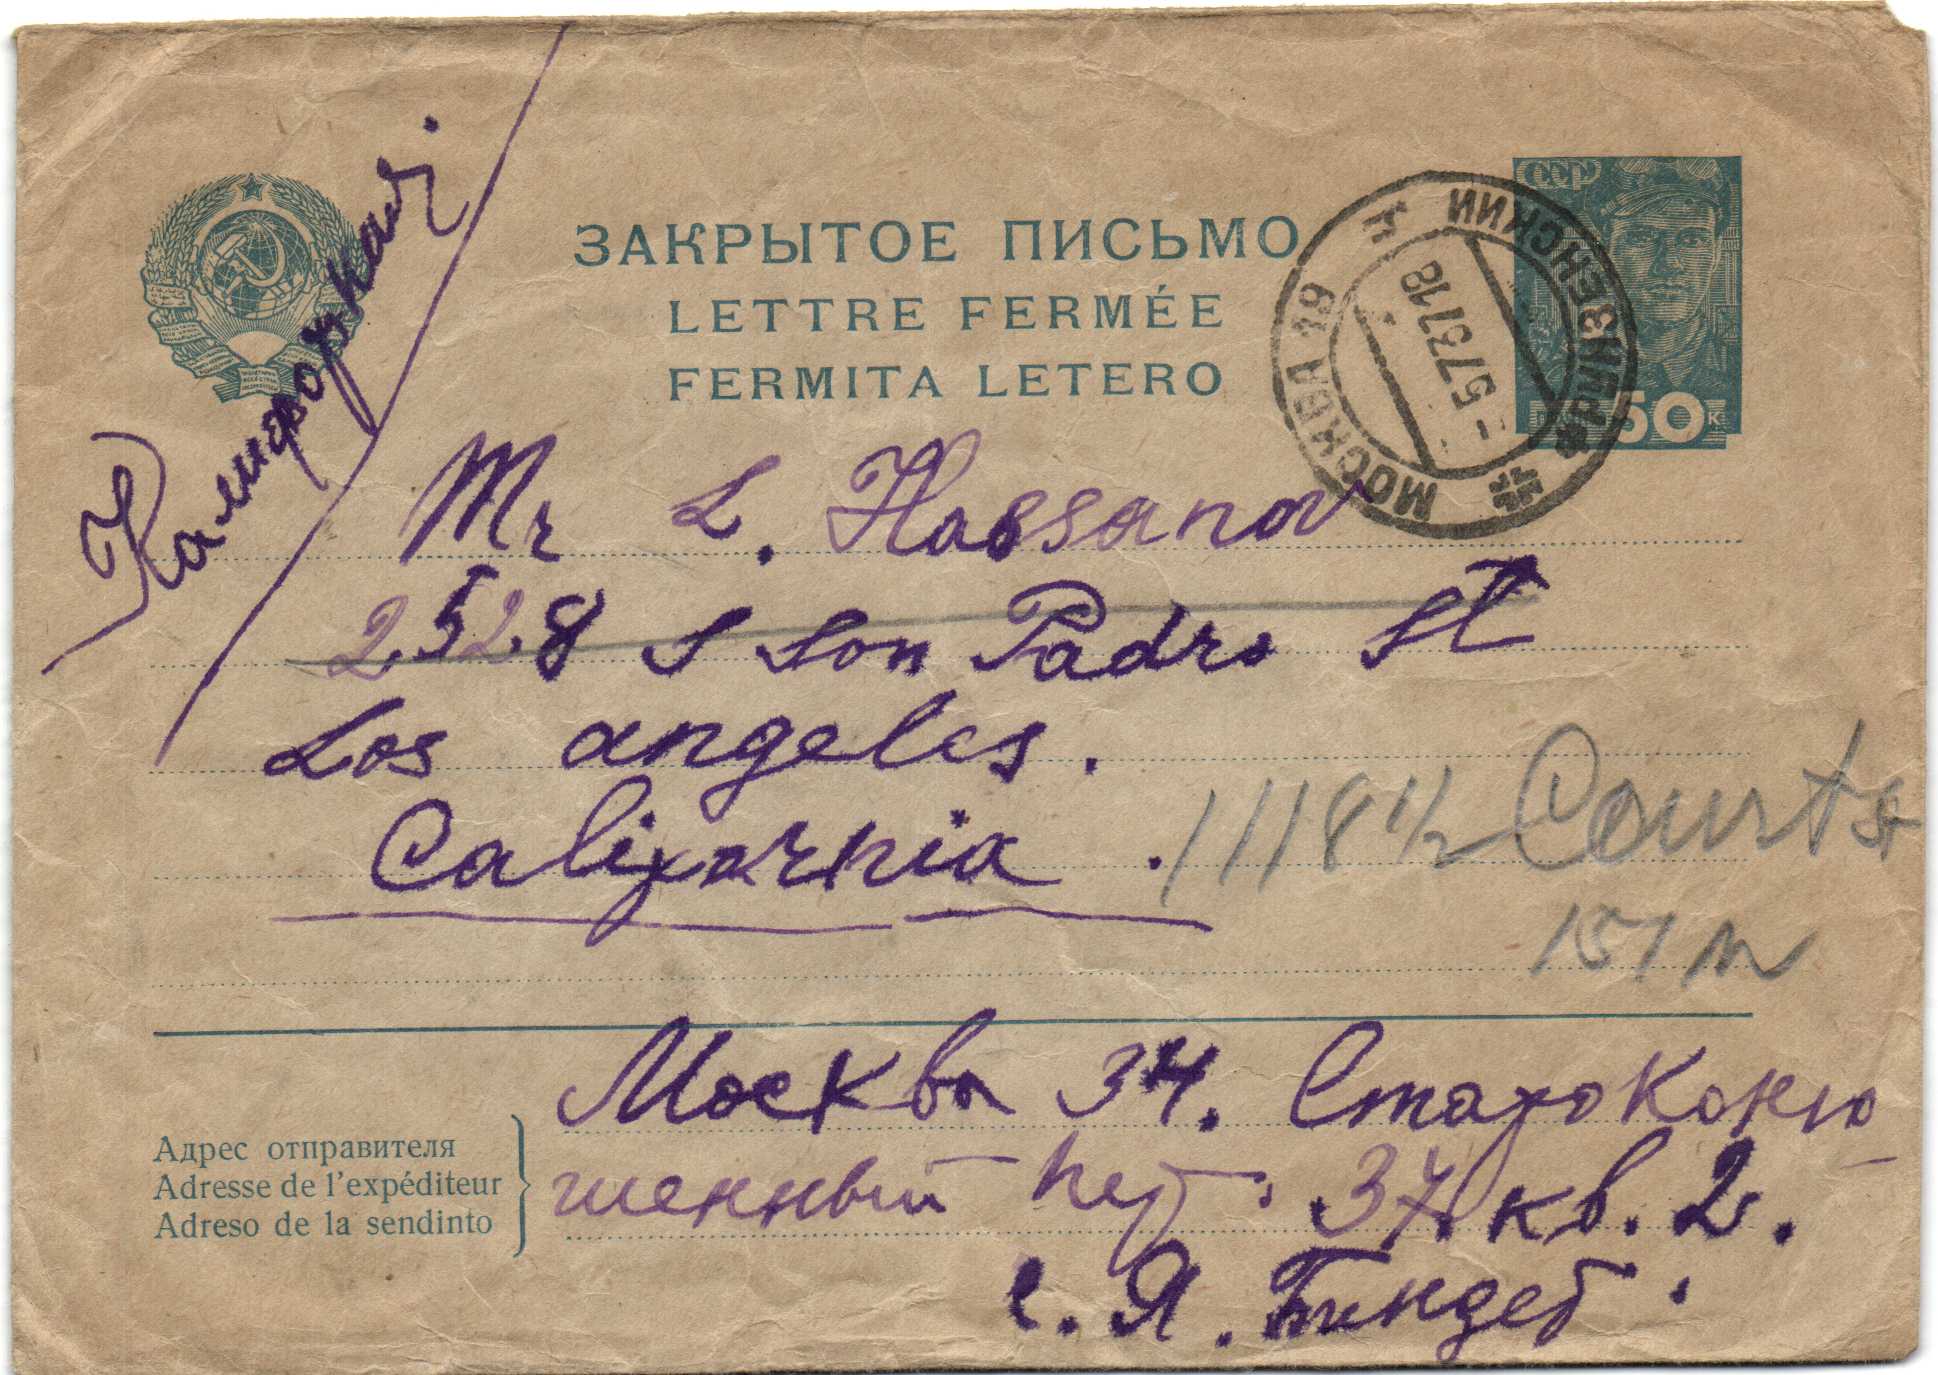 Калифорния
СССР
50 к
ЗАКРЫТОЕ ПИСЬМО
LETTRE FERMÉE
FERMITA LETERO
МОСКВА 19
- 5 7 37 18
Mr L. Hassanov
2528 S Son Padro St
Los angeles.
California.
1118 1/2 Courts
Москва 34. Староконю
шенный пер. 37. кв. 2.
Адрес отправителя
Adresse de l'expéditeur
Adreso de la sendinto
с. Я.